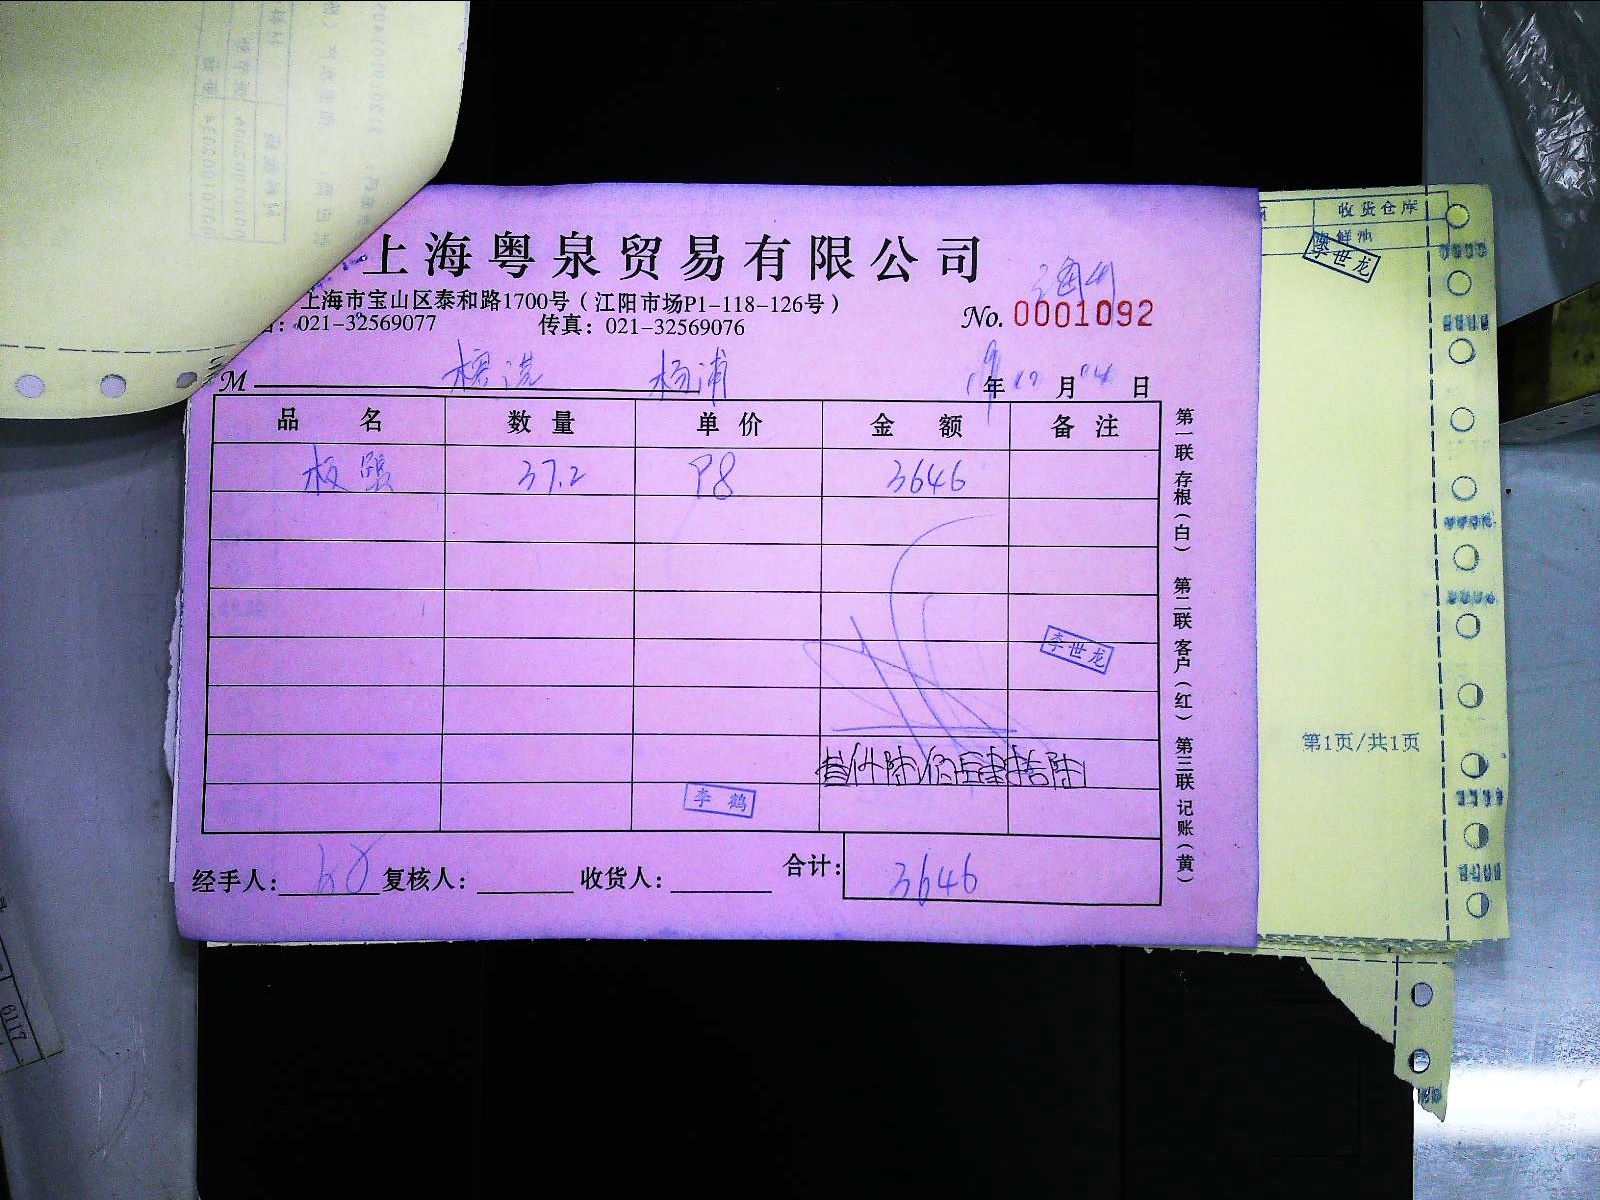 上海粤泉贸易有限公司
上海市宝山区泰和路1700号（江阳市场P1-118-126号）
：021-32569077 传真：021-32569076
No. 0001092
M 杨浦 19年12月04日
品名 数量 单价 金额 备注
板 37.2 98 3646
李世龙
叁仟陆佰肆拾陆
李鹤
合计： 3646
经手人： 复核人： 收货人：
第一联 存根（白） 第二联 客户（红） 第三联 记账（黄）
收货仓库
海鲜池
李世龙
第1页/共1页
6117